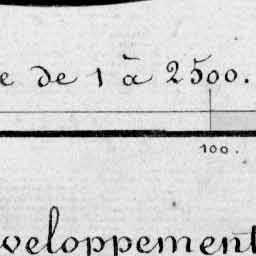 e de 1 à 2500.
100.
veloppement